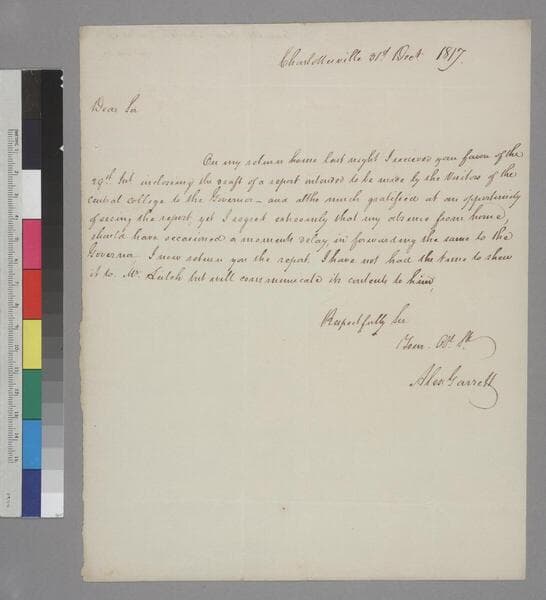 Charlottesville 31st Decr 1817.
Dear Sir
On my return home last night I received your favor of the
29th Int inclosing the draft of a report intended to be made by the Visitors of the
Central college to the Governor – and altho much gratified at an opportunity
of seeing the report, yet I regret extreamly that my absence from home,
should have occasioned a moments delay in forwarding the same to the
Governor. I now return you the report. I have not had the time to shew
it to Mr. but will communicate its contents to him,
Respectfully Sir
Your Obt. St.
Alex Garrett